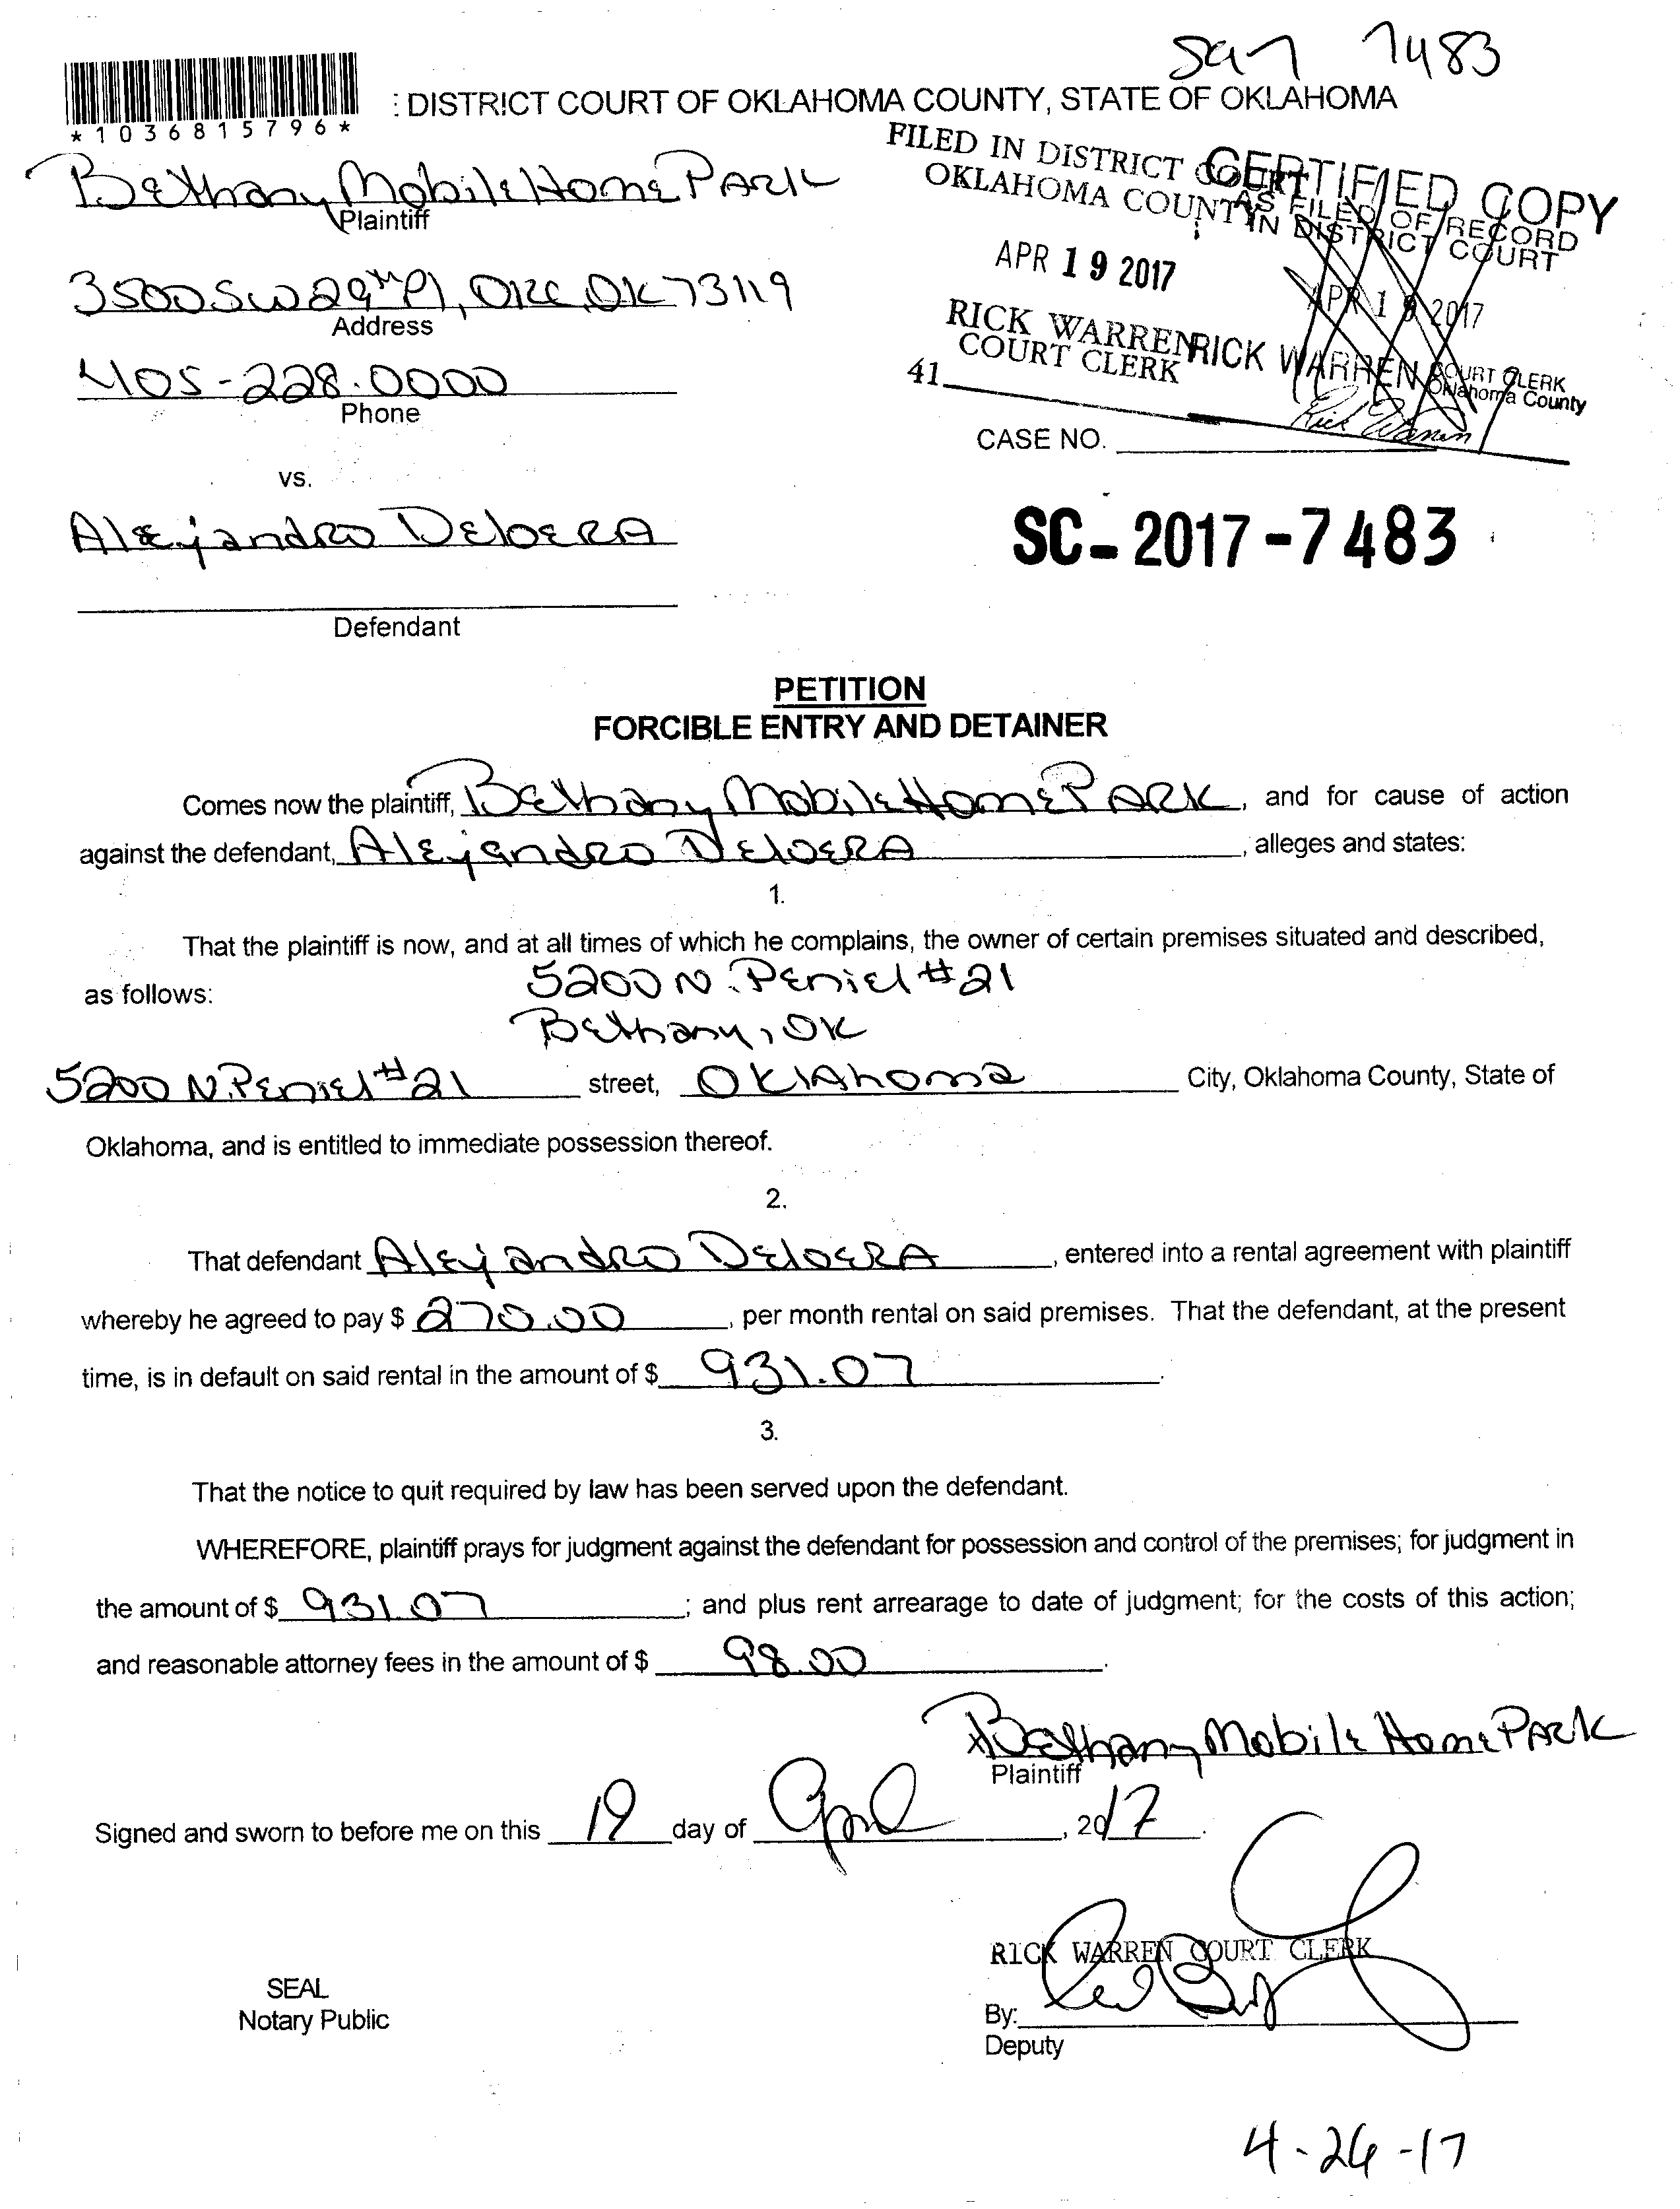 7483
: DISTRICT COURT OF OKLAHOMA COUNTY, STATE OF OKLAHOMA
*1036815796*
Bethany Mobile Home PARK
Plaintiff
FILED IN DISTRICT COURT
OKLAHOMA COUNTY
CERTIFIED COPY
AS FILED OF RECORD
IN DISTRICT COURT
3500 SW 29th Pl, OKC, OK 73119
Address
APR 19 2017
APR 19 2017
405-228-0000
Phone
RICK WARREN
COURT CLERK
RICK WARREN COURT CLERK
Oklahoma County
Rick Warren
41
CASE NO.
vs.
Alejandro DeloeRA
SC-2017-7483
Defendant
PETITION
FORCIBLE ENTRY AND DETAINER
Comes now the plaintiff, Bethany Mobile Home PARK, and for cause of action
against the defendant, Alejandro DeloeRA, alleges and states:
1.
That the plaintiff is now, and at all times of which he complains, the owner of certain premises situated and described,
as follows: 5200 N. Peniel #21
Bethany, OK
5200 N. Peniel #21 street, Oklahoma City, Oklahoma County, State of
Oklahoma, and is entitled to immediate possession thereof.
2.
That defendant Alejandro DeloeRA, entered into a rental agreement with plaintiff
whereby he agreed to pay $ 270.00, per month rental on said premises. That the defendant, at the present
time, is in default on said rental in the amount of $ 931.07.
3.
That the notice to quit required by law has been served upon the defendant.
WHEREFORE, plaintiff prays for judgment against the defendant for possession and control of the premises; for judgment in
the amount of $ 931.07; and plus rent arrearage to date of judgment; for the costs of this action;
and reasonable attorney fees in the amount of $ 98.00.
Bethany Mobile Home PARK
Plaintiff
Signed and sworn to before me on this 19 day of April, 2017.
RICK WARREN COURT CLERK
SEAL
Notary Public
By:
Deputy
4-26-17